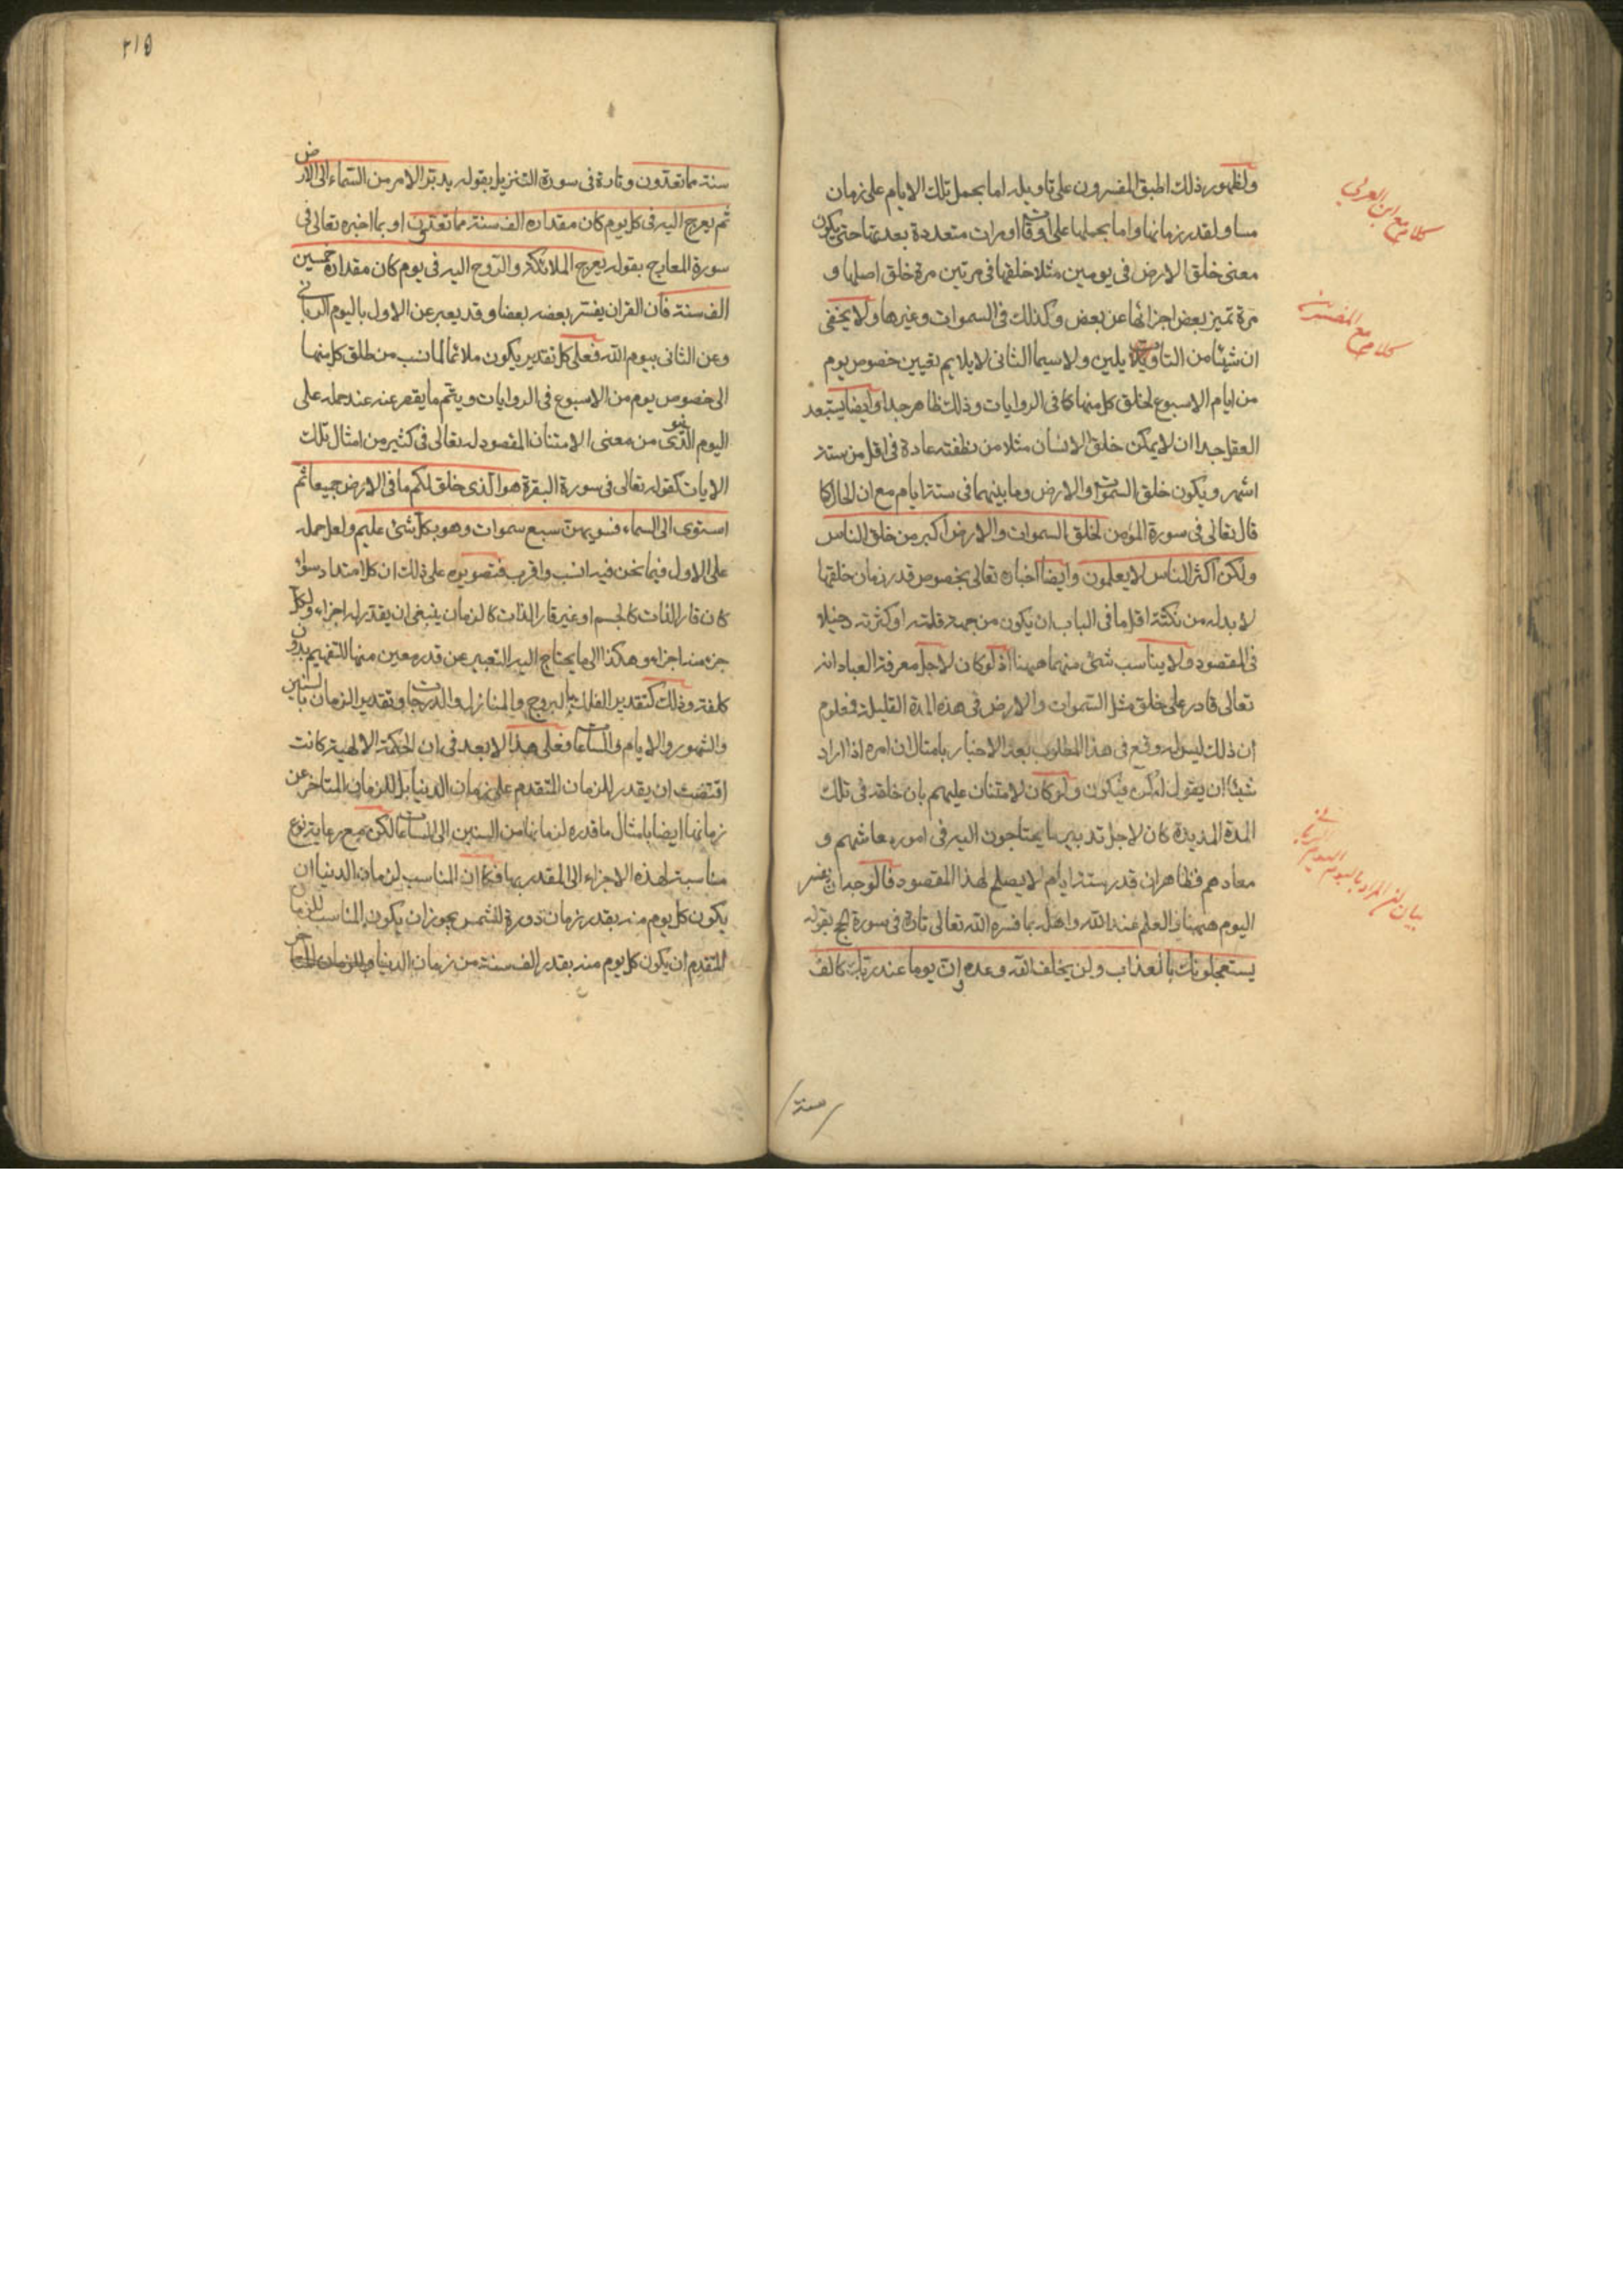 ولظهور ذلك اطبق المفسرون على تاويله اما بحمل تلك الايام على زمان
مساو لقدر زمانها واما بحملها على اوقات او مرات متعددة بعدتها حتى يكون
معنى خلق الارض فى يومين مثلا خلقها فى مرتين مرة خلق اصلها و
مرة تميز بعض اجزائها عن بعض وكذلك فى السموات وغيرها ولا يخفى
ان شيئا من التاويلين ولا سيما الثانى لا يلايم تعيين خصوص يوم
من ايام الاسبوع لخلق كل منها كما فى الروايات وذلك ظاهر جدا وايضا يستبعد
العقل جدا ان لا يمكن خلق الانسان مثلا من نطفته عادة فى اقل من ستة
اشهر ويكون خلق السموات والارض وما بينهما فى ستة ايام مع ان الحال كما
قال تعالى فى سورة المؤمن لخلق السموات والارض اكبر من خلق الناس
ولكن اكثر الناس لا يعلمون وايضا اخباره تعالى بخصوص قدر زمان خلقها
لا بد له من نكتة اقل ما فى الباب ان يكون من جهة قلته او كثرته دخيلا
فى المقصود ولا يناسب شئ منهما هيهنا اذ لو كان لاجل معرفة العباد انه
تعالى قادر على خلق مثل السموات والارض فى هذه المدة القليلة فمعلوم
ان ذلك ليس له وقع فى هذا المطلوب بعد الاخبار بامثال ان امره اذا اراد
شيئا ان يقول له كن فيكون ولو كان لامتنان عليهم بان خلقه فى تلك
المدة المديدة كان لاجل تدبير ما يحتاجون اليه فى امور معاشهم و
معادهم فظاهر ان قدر ستة ايام لا يصلح لهذا المقصود فالوجه ان يفسر
اليوم هيهنا والعلم عند الله واهله بما فسره الله تعالى تارة فى سورة الحج بقوله
يستعجلونك بالعذاب ولن يخلف الله وعده وان يوما عند ربك كالف
سنة
كلام مع ابن العربي
كلام مع المفسرين
بيان ان المراد باليوم اليوم الربانى
٢١٥
سنة مما تعدون وتارة فى سورة التنزيل بقوله يدبر الامر من السماء الى الارض
ثم يعرج اليه فى كل يوم كان مقداره الف سنة مما تعدون او بما اخبره تعالى فى
سورة المعارج بقوله يعرج الملائكة والروح اليه فى يوم كان مقداره خمسين
الف سنة فان القران يفسر بعضه بعضا وقد يعبر عن الاول باليوم الربانى
وعن الثانى بيوم الله فعلى كل تقدير يكون ملائما لما نسب من خلق كل منها
الى خصوص يوم من الاسبوع فى الروايات ويتم ما يقصر عنه عند حمله على
اليوم الدنيوى من معنى الامتنان المقصود له تعالى فى كثير من امثال تلك
الايات كقوله تعالى فى سورة البقرة هو الذى خلق لكم ما فى الارض جميعا ثم
استوى الى السماء فسويهن سبع سموات وهو بكل شئ عليم ولعل حمله
على الاول فيما نحن فيه انسب واقرب فتصويره على ذلك ان كل امتداد سواء
كان قار الذات كالجسم او غير قار الذات كالزمان ينبغى ان يقدر له اجزاء ولكل
جزء منه اجزاء وهكذا الى ما يحتاج اليه التعبير عن قدر معين منها للتفهيم بدون
كلفة وذلك كتقدير الفلك بالبروج والمنازل والدرجات وتقدير الزمان بالسنين
والشهور والايام والساعات فعلى هذا لا بعد فى ان الحكمة الالهية كانت
اقتضت ان يقدر للزمان المتقدم على زمان الدنيا بل للزمان المتاخر عن
زمانها ايضا بامثال ما قدره لزمانها من السنين الى الساعات لكن مع رعاية نوع
مناسبة لهذه الاجزاء الى المقدر بها فكما ان المناسب لزمان الدنيا ان
يكون كل يوم منه بقدر زمان دورة للشمس يجوز ان يكون المناسب للزمان
المتقدم ان يكون كل يوم منه بقدر الف سنة من زمان الدنيا